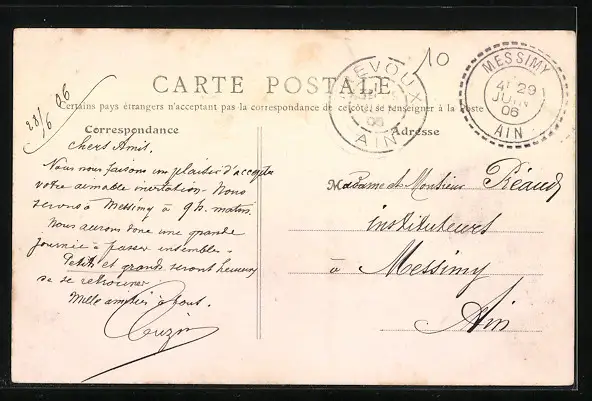 10
CARTE POSTALE
Certains pays étrangers n'acceptant pas la correspondance de ce côté, se renseigner à la poste
TREVOUX
06
AIN
MESSIMY
4E 29
JUIN
06
AIN
28/6 06
Correspondance
Chers Amis.
Nous nous faisons un plaisir d'accepter
votre aimable invitation. Nous
serons à Messimy à 9h. matin.
Nous aurons donc une grande
journée à passer ensemble.
Petits et grands seront heureux
de se retrouver
Mille amitiés à tous.
Cuzin
Adresse
Madame et Monsieur Réaud
instituteurs
à Messimy
Ain